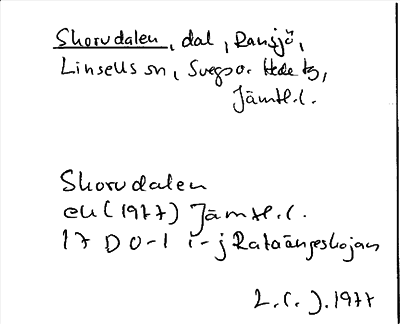 Skorvdalen, dal, Ransjö,
Linsells sn, Svegs o. Hede tg,
Jämtl.l.
Skorvdalen
ek (1977) Jämtl.l.
17 D 0-1 i-j Rataängeskojan
L.l. J. 1977